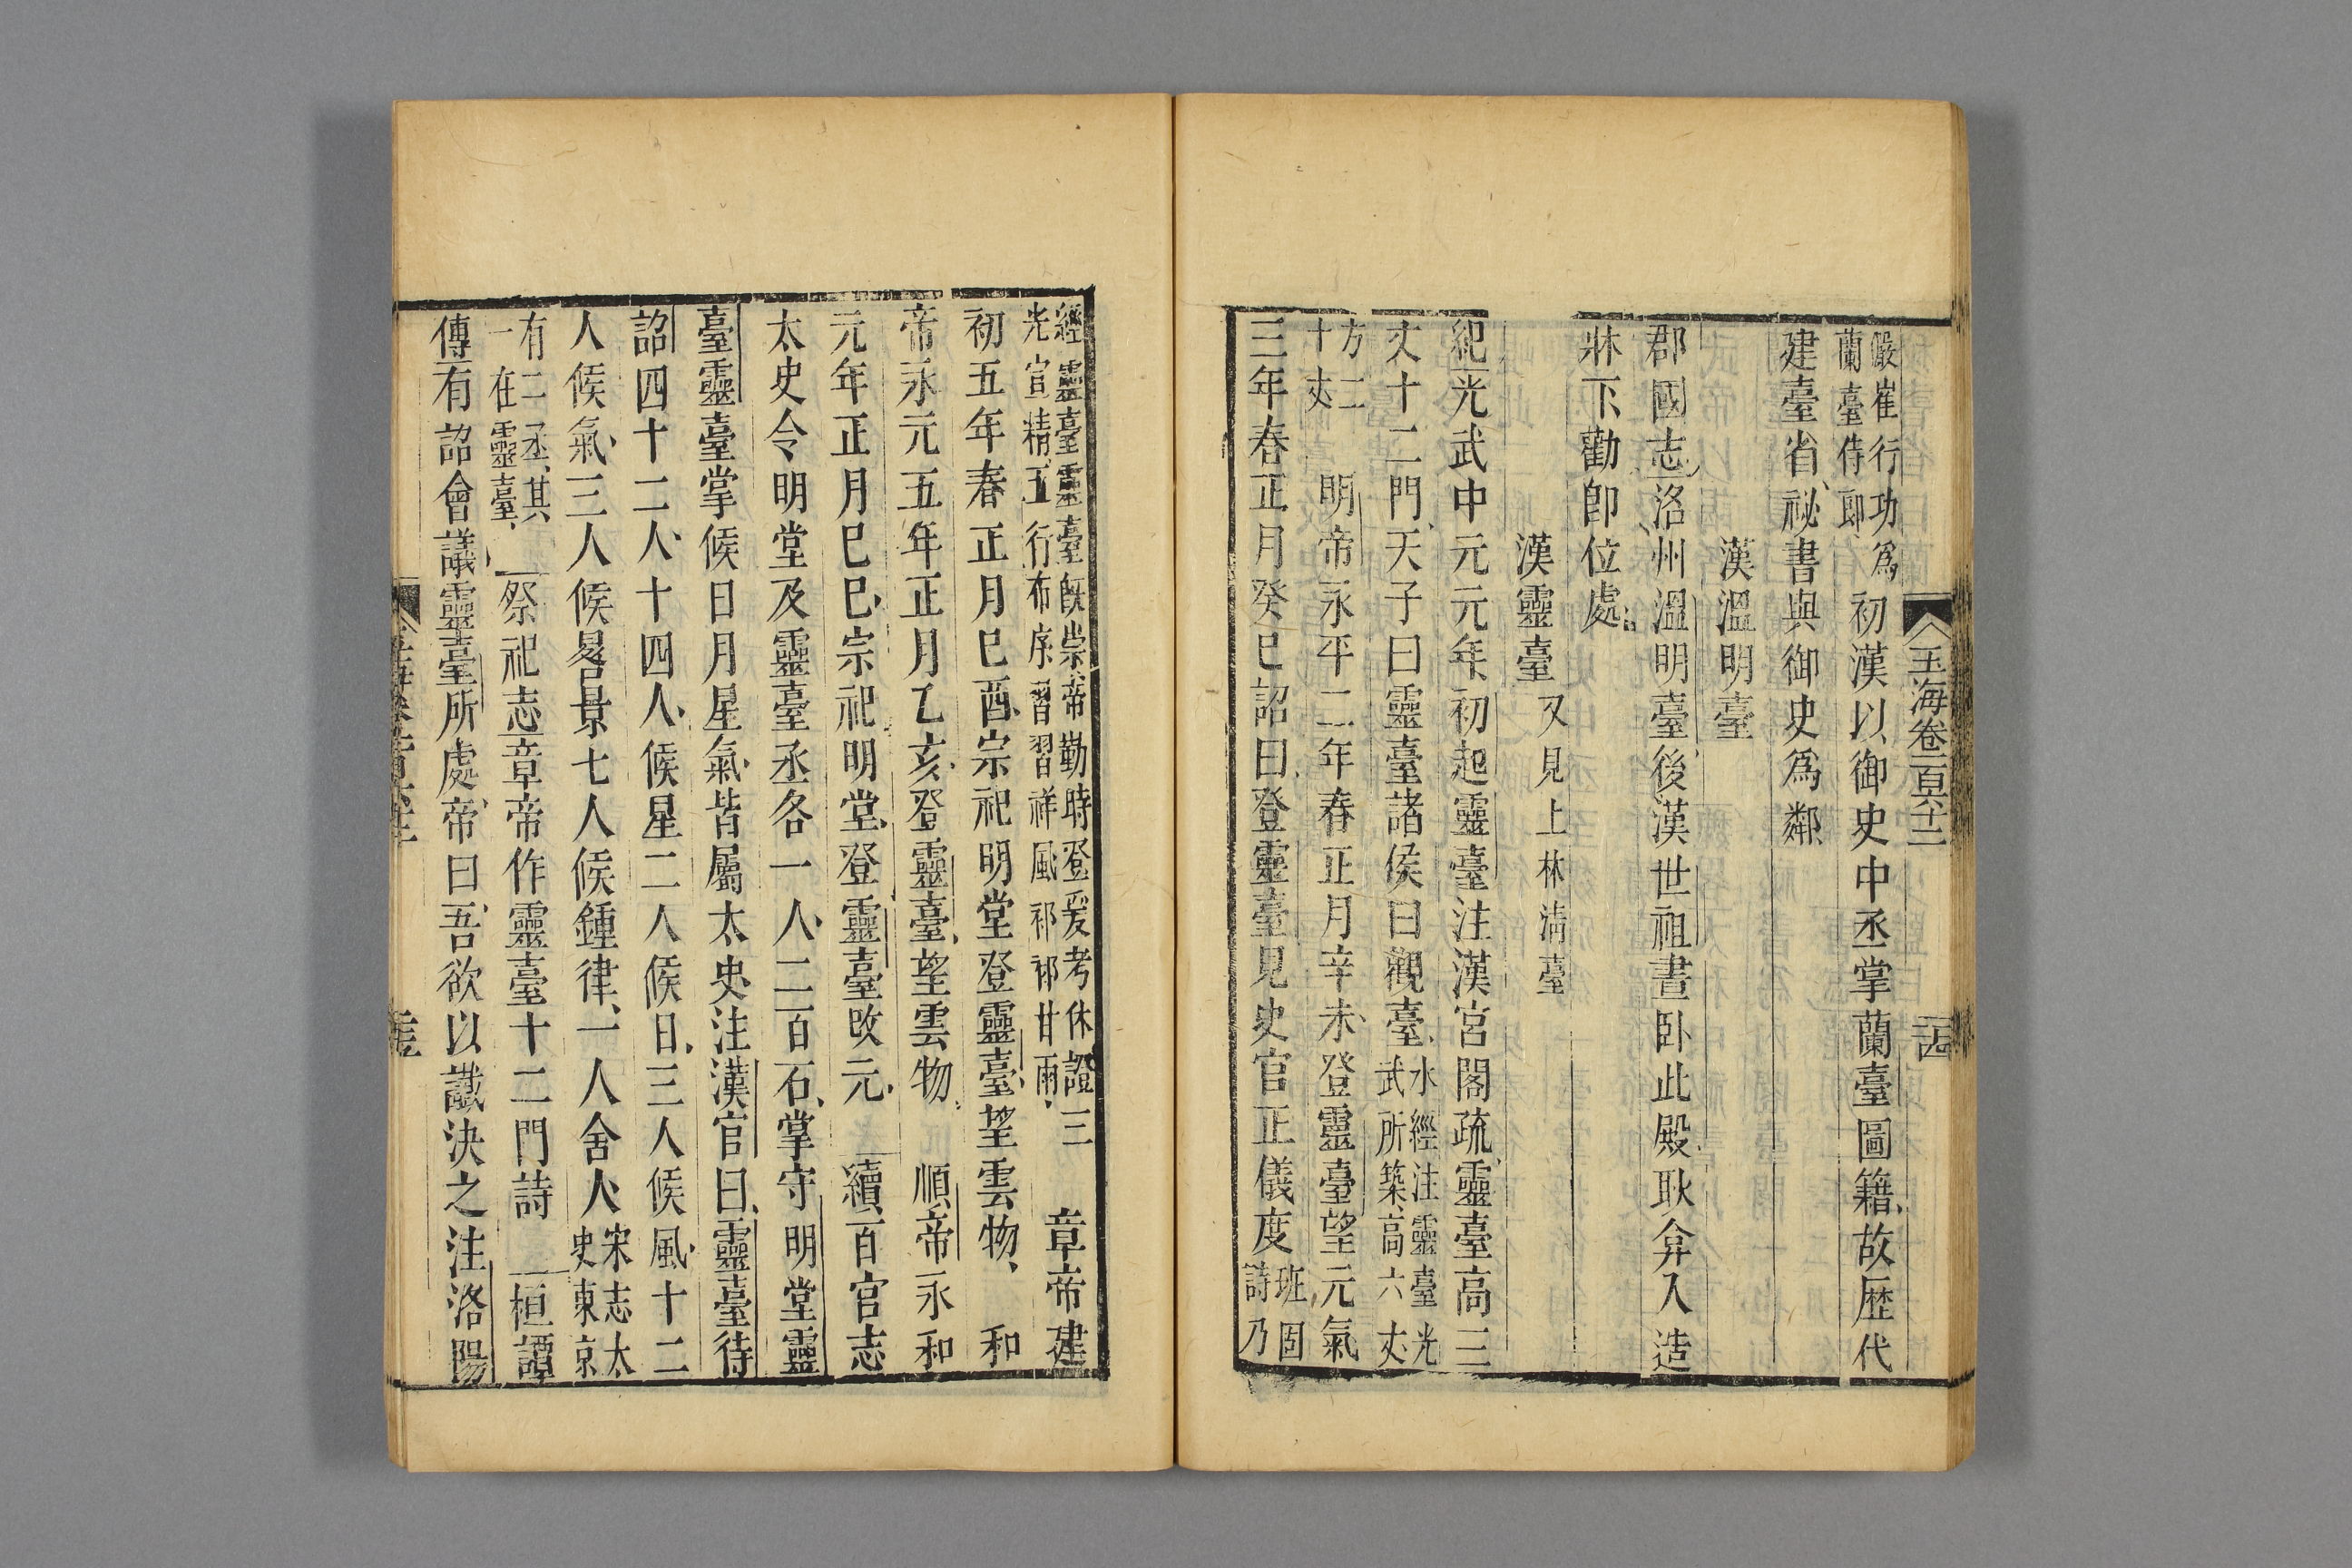 玉海卷一百六十二 二十四
嚴崔行功爲
蘭臺侍郎
初漢以御史中丞掌蘭臺圖籍故歷代
建臺省祕書與御史爲鄰
漢溫明臺
郡國志洛州溫明臺後漢世祖晝卧此殿耿弇入造
牀下勸卽位處
漢靈臺 又見上林淸臺
紀光武中元元年初起靈臺注漢宮閣疏靈臺高三
丈十二門天子曰靈臺諸侯曰觀臺
水經注靈臺光
武所築高六丈
方二
十丈
明帝永平二年春正月辛未登靈臺望元氣
三年春正月癸巳詔曰登靈臺見史官正儀度
班固
詩乃
經靈臺靈臺旣崇帝勤時登爰考休證三
光宣精五行布序習習祥風祁祁甘雨
章帝建
初五年春正月巳酉宗祀明堂登靈臺望雲物 和
帝永元五年正月乙亥登靈臺望雲物 順帝永和
元年正月巳巳宗祀明堂登靈臺改元 續百官志
太史令明堂及靈臺丞各一人二百石掌守明堂靈
臺靈臺掌候日月星氣皆屬太史注漢官曰靈臺待
詔四十二人十四人候星二人候日三人候風十二
人候氣三人候晷景七人候鍾律一人舍人
宋志太
史東京
有二丞其
一在靈臺
祭祀志章帝作靈臺十二門詩 桓譚
傳有詔會議靈臺所處帝曰吾欲以讖決之注洛陽